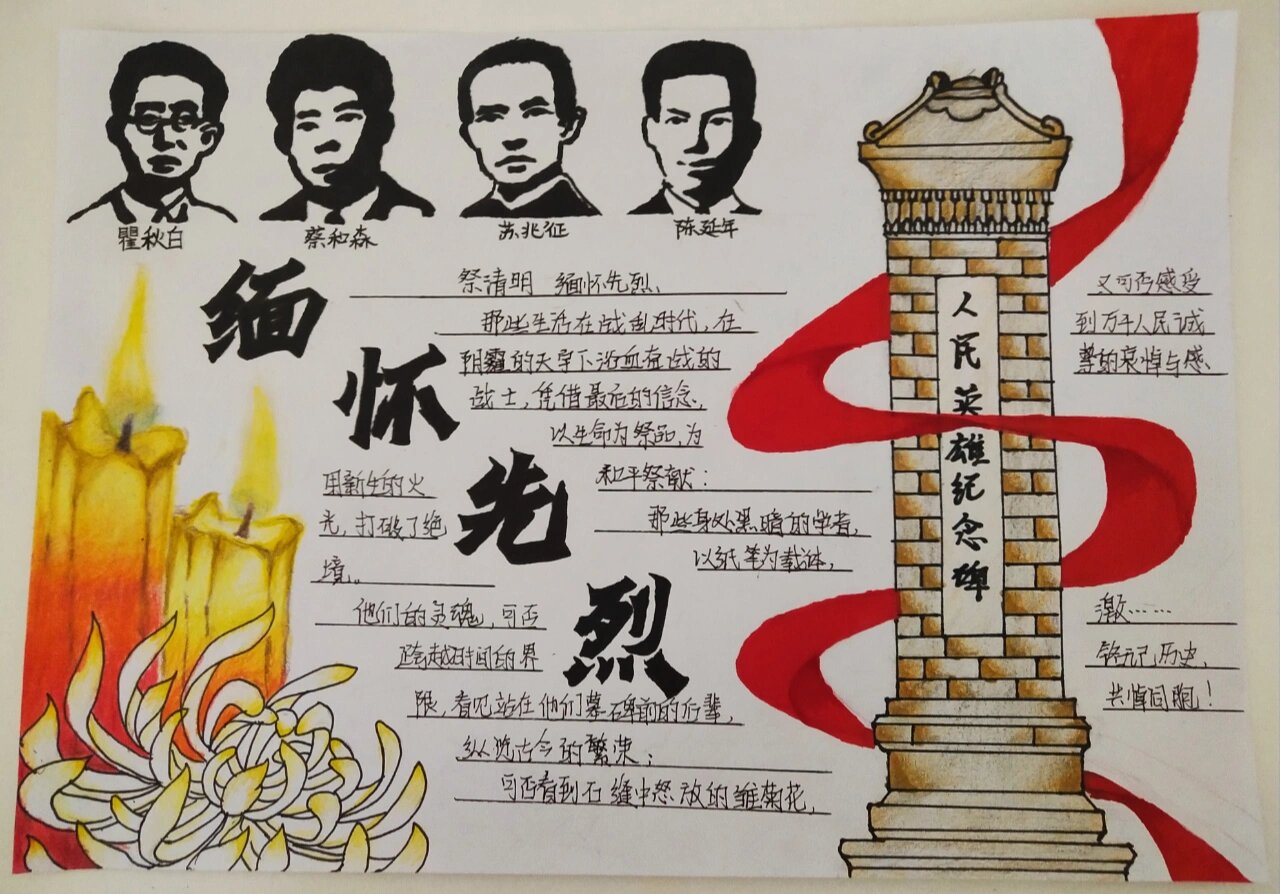 瞿秋白
蔡和森
苏兆征
陈延年
缅怀先烈
祭清明 缅怀先烈、
那些生活在战乱时代,在
阴霾的天宇下浴血奋战的
战士,凭借最后的信念,
以生命为祭品,为
和平祭献:
那些身处黑暗的学者,
以纸笔为载体,
用新生的火
光,打破了绝
境。
他们的灵魂,可否
跨越时间的界
限,看见站在他们墓碑前的后辈,
纵览古今的繁荣;
可否看到石缝中怒放的雏菊花,
人民英雄纪念碑
又可否感受
到万千人民诚
挚的哀悼与感
激……
铭记历史,
共悼同胞!